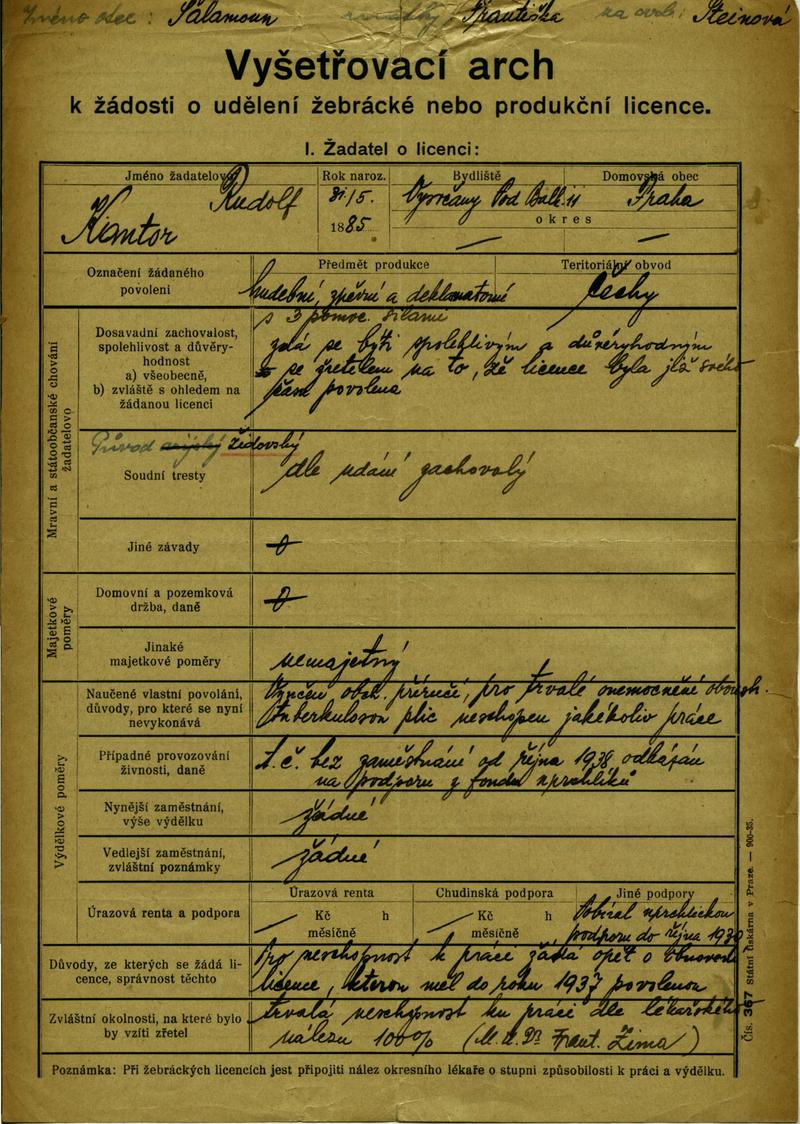 Jméno otce: Salamoun matky Františka Steinová
Vyšetřovací arch
k žádosti o udělení žebrácké nebo produkční licence.
I. Žadatel o licenci:
Jméno žadatelovo Rok naroz. Bydliště Domovská obec
Kantor Rudolf 31/5. 1885 Vysočany Pod Praha
okres
Označení žádaného povolení
Předmět produkce Teritoriální obvod
hudební, zpěvní a deklamatorní Čechy
s 3 pomoc. silami
Mravní a státoobčanské chování žadatelovo
Dosavadní zachovalost,
spolehlivost a důvěry-
hodnost
a) všeobecně,
b) zvláště s ohledem na
žádanou licenci
zdá se býti spolehlivým a důvěryhodným
se zřetelem na to, že licence byla již svého
času povolena
Původ arijský židovský
Soudní tresty
dle udání zachovalý
Jiné závady
0
Majetkové poměry
Domovní a pozemková
držba, daně
0
Jinaké
majetkové poměry
nemajetný
Výdělkové poměry
Naučené vlastní povolání,
důvody, pro které se nyní
nevykonává
Vyučen obch. příručí, pro trvalé onemocnění
tuberkulosou plic neschopen jakékoliv práce
Případné provozování
živnosti, daně
t. č. bez zaměstnání od října 1938 odkázán
na podporu z fondu uprchlíků
Nynější zaměstnání,
výše výdělku
žádné
Vedlejší zaměstnání,
zvláštní poznámky
žádné
Úrazová renta a podpora
Úrazová renta Chudinská podpora Jiné podpory
/ Kč h / Kč h Pobíral uprchlickou
měsíčně měsíčně podporu do října
Důvody, ze kterých se žádá li-
cence, správnost těchto
Pro neschopnost k práci žádá opět o obnovení
licence, kterou měl do roku 1937 povolenou
Zvláštní okolnosti, na které bylo
by vzíti zřetel
trvalá neschopnost ku práci dle lékařského
nálezu 100% (M.U.Dr Frant. Zima)
Poznámka: Při žebráckých licencích jest připojiti nález okresního lékaře o stupni způsobilosti k práci a výdělku.
Čís. 367 Státní tiskárna v Praze. — 900-35.